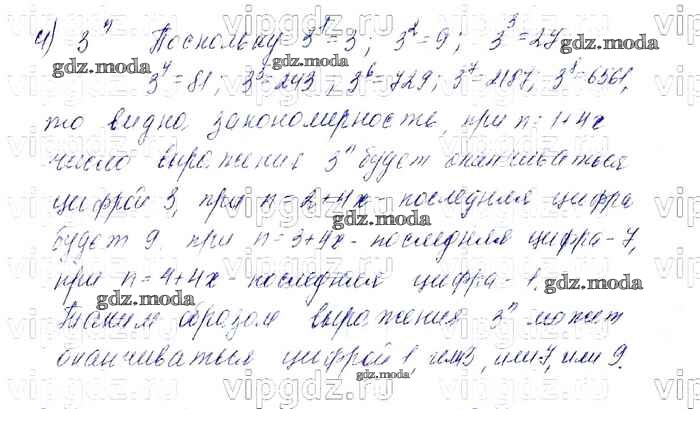 4) 3ⁿ Поскольку 3¹=3; 3²=9; 3³=27
3⁴=81; 3⁵=243; 3⁶=729; 3⁷=2187; 3⁸=6561,
то видна закономерность, при n=1+4x
число выражения 3ⁿ будет оканчиваться
цифрой 3, при n=2+4x - последняя цифра
будет 9. при n=3+4x - последняя цифра - 7,
при n=4+4x - последняя цифра - 1.
Таким образом выражения 3ⁿ может
оканчиваться цифрой 1, или 3, или 7, или 9.
gdz.moda
gdz.moda
gdz.moda
gdz.moda
gdz.moda
gdz.moda
gdz.moda
vipgdz.ru